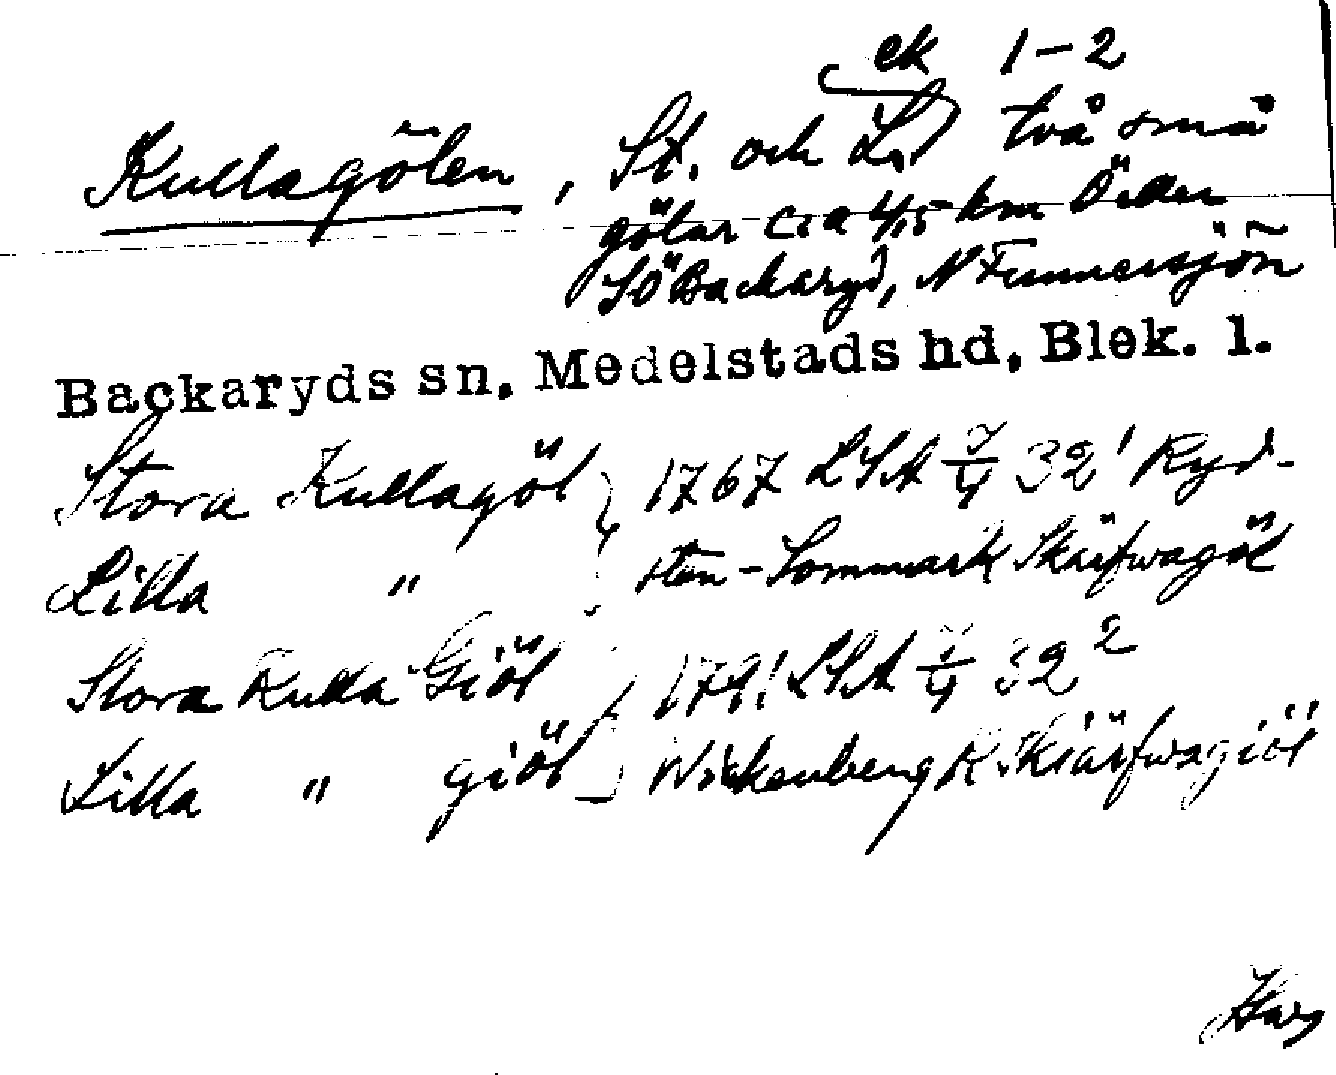 ek 1-2
Kullagölen, St. och L. två små
gölar c:a 4,5 km
SÖ Backaryd, N Funnersjön
Backaryds sn, Medelstads hd, Blek. l.
Stora Kullagöl } 1767 LSA 7/4 32¹ Ryd-
Lilla " sten - Lommark Skärfwagöl
Stora Kulla Giöl } 1791 LSA 7/4 32²
Lilla " giöl Wickenberg K Skiärfwagiöl